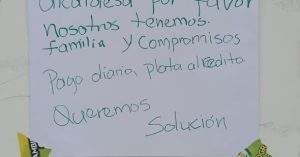 alcaldesa por favor
nosotros tenemos.
familia y compromisos
Pago diario, plata al crédito.
Queremos
Solución